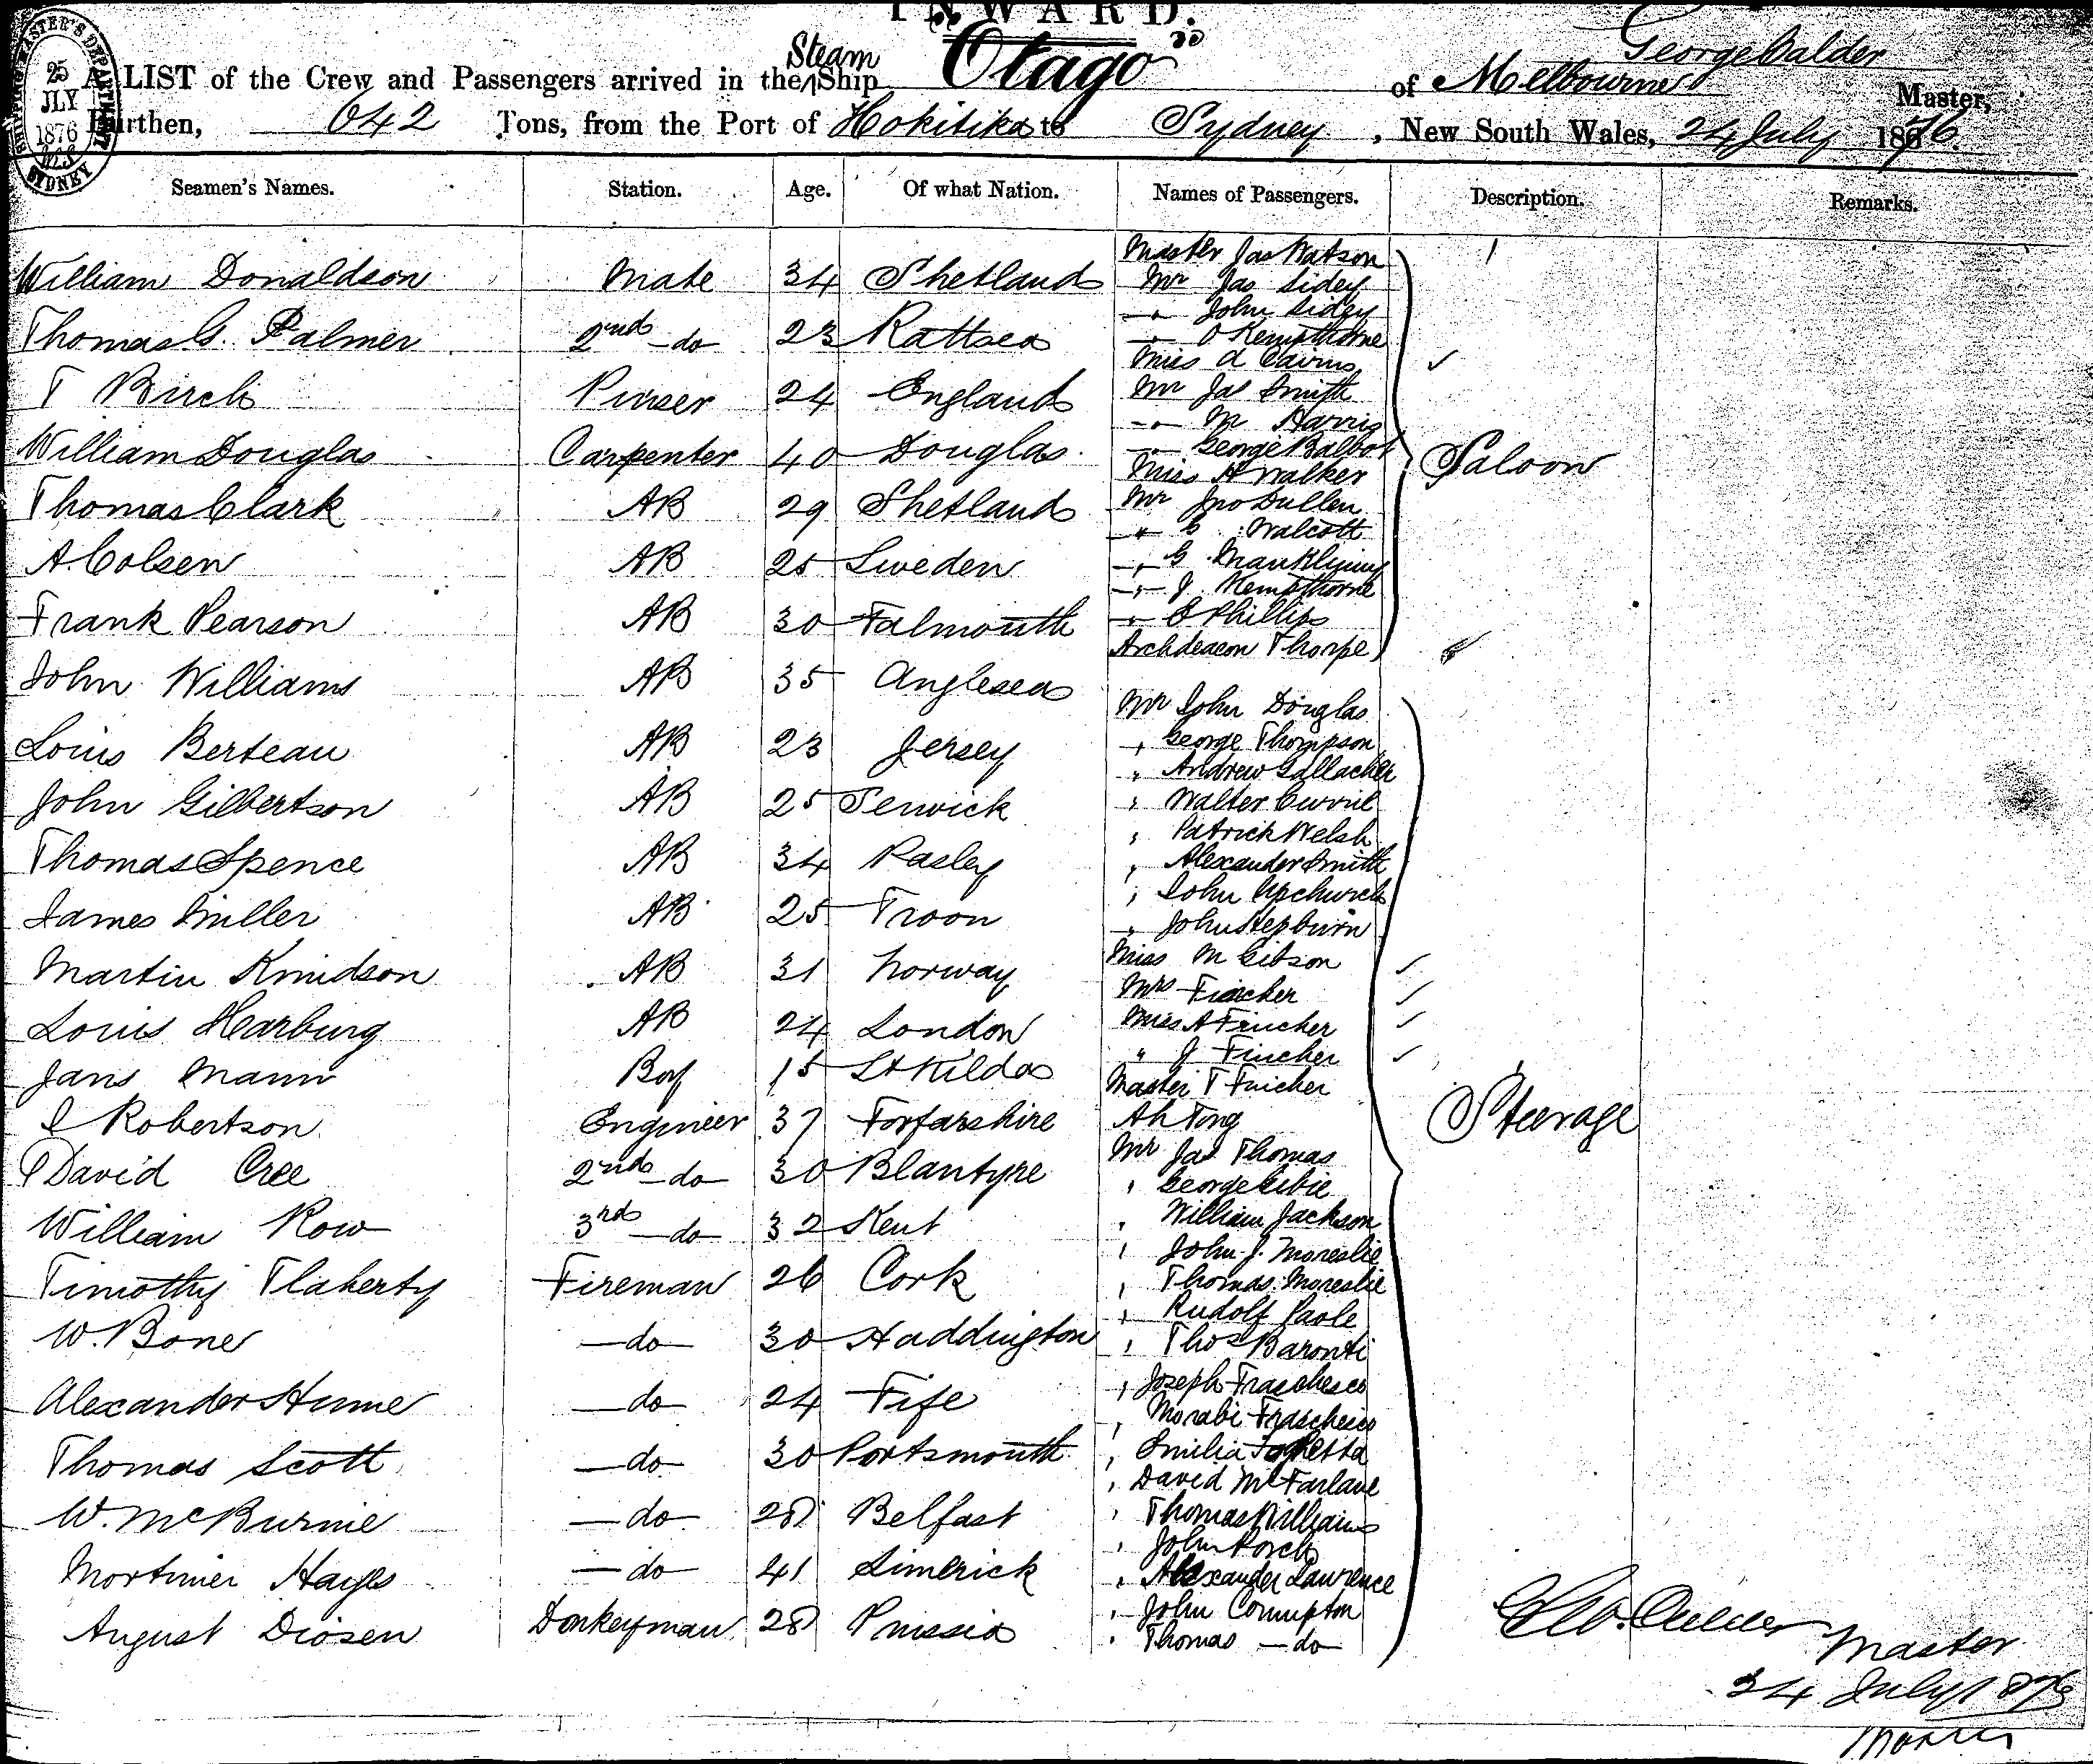 INWARD.
SHIPPING MASTER'S DEPARTMENT
25
JLY
1876
SYDNEY
George Calder
A LIST of the Crew and Passengers arrived in the Steam Ship Otago of Melbourne Master,
Burthen, 642 Tons, from the Port of Hokitika to Sydney, New South Wales, 24 July 1876.
Seamen's Names. Station. Age. Of what Nation. Names of Passengers. Description. Remarks.
William Donaldson Mate 34 Shetland
Thomas G. Palmer 2nd do 23
T Birch Purser 24 England
William Douglas Carpenter 40 Douglas
Thomas Clark AB 29 Shetland
A. Colsen AB 25 Sweden
Frank Pearson AB 30 Falmouth
John Williams AB 35 Anglesea
Louis Berteau AB 23 Jersey
John Gilbertson AB 25
Thomas Spence AB 34 Pasley
James Miller AB 25 Troon
Martin Knudson AB 31 Norway
Louis Harburg AB 24 London
Jans Mann Boy 15 St Kilda
Robertson Engineer 37 Forfarshire
David Cree 2nd do 30 Blantyre
William Row 3rd do 32 Kent
Timothy Flaherty Fireman 26 Cork
W. Bone do 30 Haddington
Alexander Hume do 24 Fife
Thomas Scott do 30 Portsmouth
W. McBurnie do 28 Belfast
Mortimer Hayes do 41 Limerick
August Diosen Donkeyman 28 Prussia
Master Jas Watson
Mr Jas Sidey
" John Sidey
" O Kempthorne
Miss A Cairns
Mr Jas Smith
" M Harris
" George Balbot
Miss H Walker
Mr Jno Dullen
" C Walcott
" G
" J. Kempthorne
" E Phillips
Archdeacon Thorpe
Saloon
Mr John Douglas
" George Thompson
" Andrew Gallacher
" Walter Currie
" Patrick Welsh
" Alexander Smith
" John Upchurch
" John Hepburn
Miss M Gibson
Mrs Fincher
Miss A Fincher
" J Fincher
Master T Fincher
Ah Tong
Mr Jas Thomas
" George
" William Jackson
" John J. Moreslie
" Thomas Moreslie
" Rudolf Paole
" Thos Baronti
" Joseph Fraschesco
" Morabi Fraschesco
" Emilia
" David McFarlane
" Thomas Williams
" John Porch
" Alexander Lawrence
" John Crumpton
" Thomas do
Steerage
Geo. Calder
Master
24 July 1876